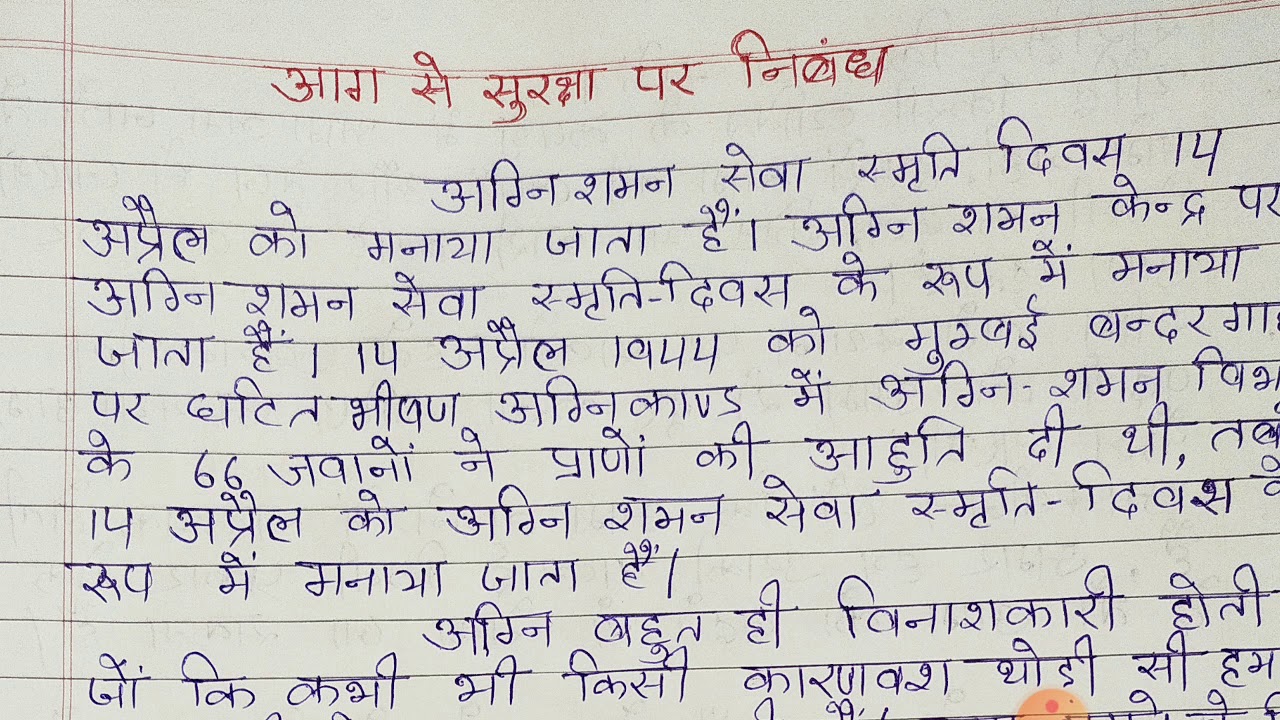 आग से सुरक्षा पर निबंध
अग्निशमन सेवा स्मृति दिवस 14
अप्रैल को मनाया जाता हैं। अग्नि शमन केन्द्र पर
अग्नि शमन सेवा स्मृति-दिवस के रूप में मनाया
जाता हैं। 14 अप्रैल 1944 को मुम्बई बन्दरगा
पर घटित भीषण अग्निकाण्ड में अग्नि-शमन विभ
के 66 जवानों ने प्राणों की आहुति दी थी, तब
14 अप्रैल को अग्नि शमन सेवा स्मृति-दिवश के
रूप में मनाया जाता हैं।
अग्नि बहुत ही विनाशकारी होती
जों कि कभी भी किसी कारणवश थोडी सी हम